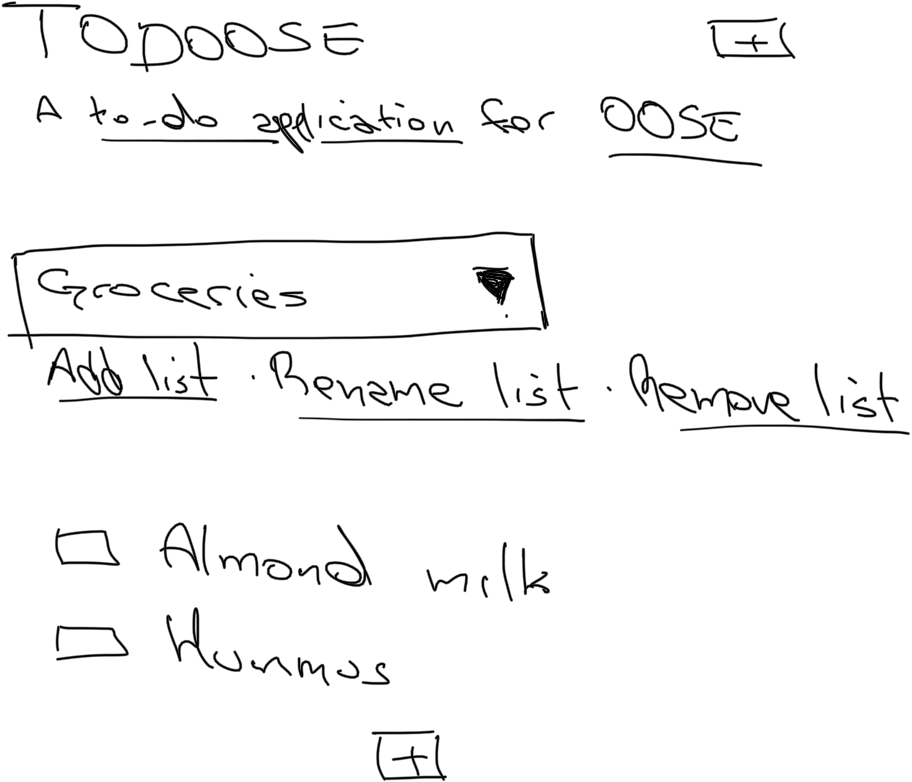 TODOOSE +
A to-do application for OOSE
Groceries
Add list · Rename list · Remove list
Almond milk
Hummos
+